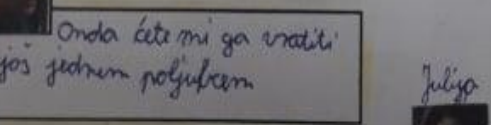 Onda ćete mi ga vratiti
još jednim poljupcem
Julija